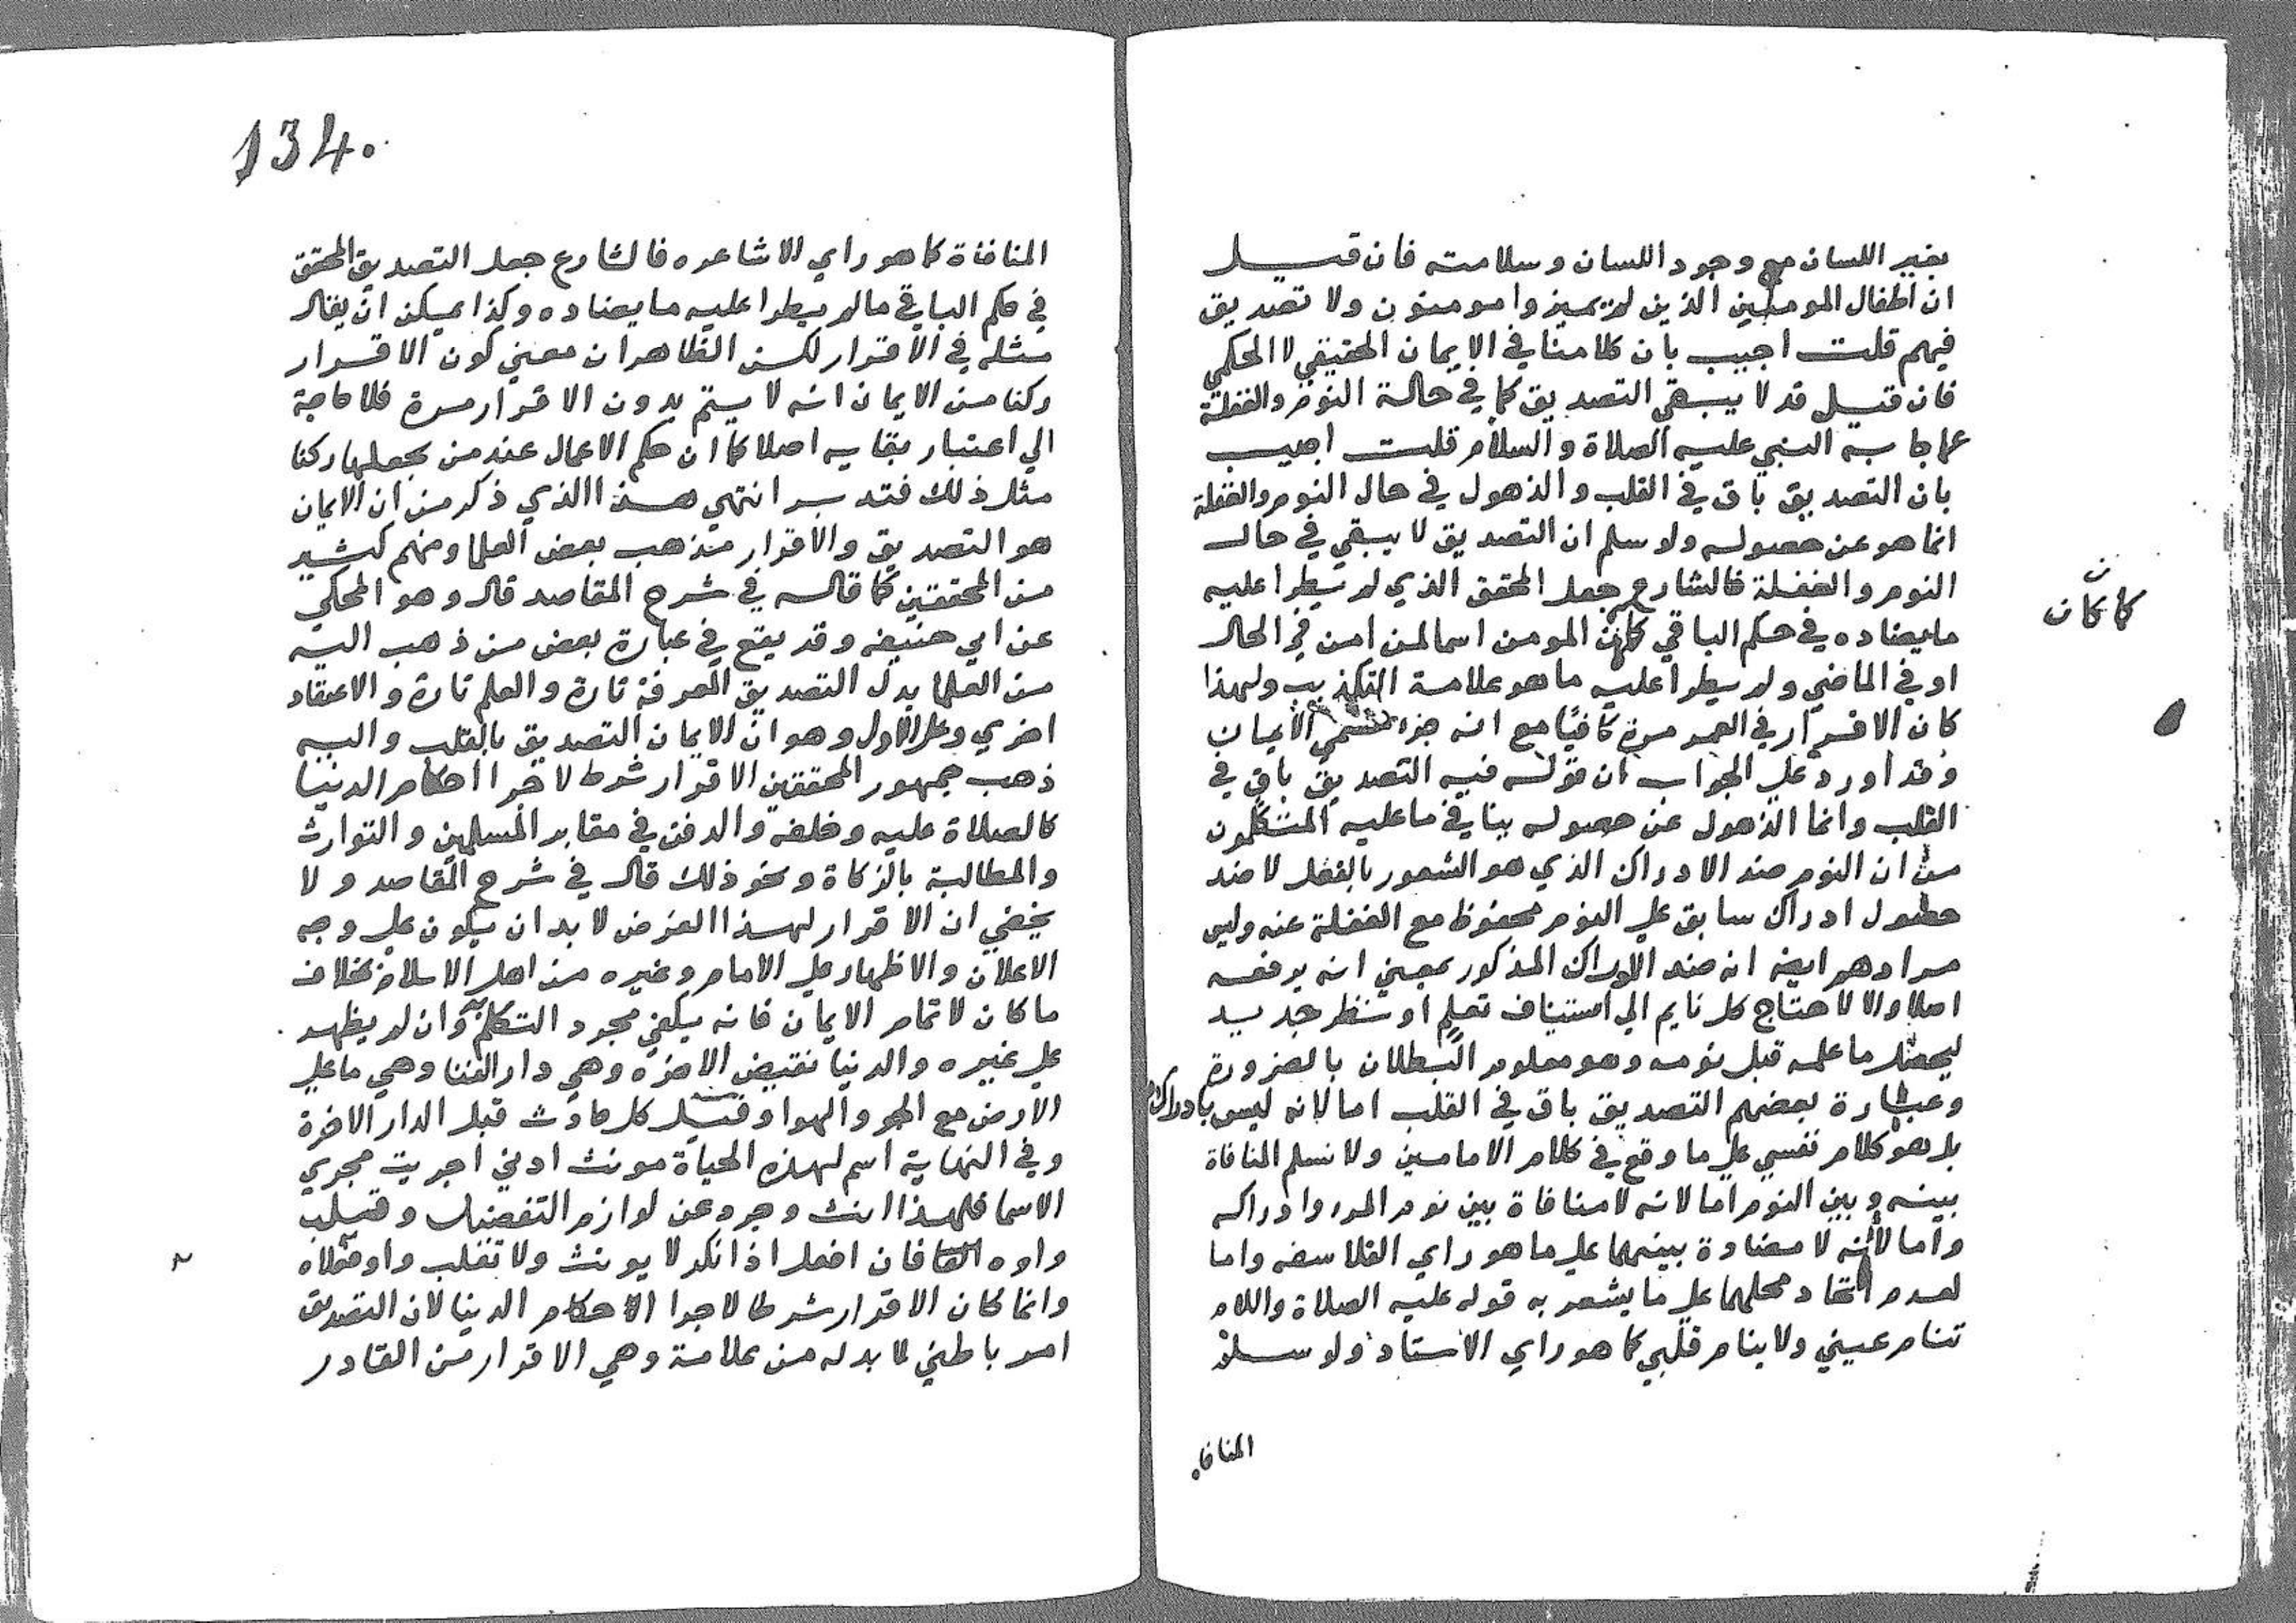 بغير اللسان مع وجود اللسان وسلامته فان قيل
ان اطفال المومنين الذين لم يميزوا مومنون ولا تصديق
فيهم قلت اجيب بان كلامنا في الايمان الحقيقي لا الحكمي
فان قيل قد لا يبقي التصديق كما في حالة النوم والغفلة
عما جا به النبي عليه الصلاة والسلام قلت اجيب
بان التصديق باق في القلب والذهول في حال النوم والغفلة
انما هو عن حصوله ولو سلم ان التصديق لا يبقي في حال
النوم والغفلة فالشارع جعل المحقق الذي لم يطرا عليه
ما يضاده في حكم الباقي كان المومن اسما لمن امن في الحال
كما كان
ن
او في الماضي ولم يطرا عليه ما هو علامة التكذيب ولهذا
كان الاقرار في العمر مرة كافيا مع انه جزء مسمي الايمان
وقد اورد علي الجواب ان قوله فيه التصديق باق في
القلب وانما الذهول عن حصوله ينافي ما عليه المتكلمون
من ان النوم ضد الادراك الذي هو الشعور بالفعل لا ضد
حصول ادراك سابق علي النوم محفوظ مع الغفلة عنه وليس
مرادهم ايضه انه ضد الادراك المذكور بمعني انه يرفعه
اصلا والا لاحتاج كل نايم الي استيناف تعلم او نظر جديد
ليحصل ما علمه قبل نومه وهو معلوم البطلان بالضرورة
وعبارة بعضهم التصديق باق في القلب اما لانه ليس بادراك
بل هو كلام نفسي علي ما وقع في كلام الامامين ولا نسلم المنافاة
بينه وبين النوم اما لانه لا منافاة بين نوم المرء وادراكه
واما لانه لا مضادة بينهما علي ما هو راي الفلاسفه واما
لعدم اتحاد محلهما علي ما يشعر به قوله عليه الصلاة واللام
تنام عيني ولا ينام قلبي كما هو راي الاستاذ ولو سلم
المنافاه
134.
المنافاة كما هو راي الاشاعره فالشارع جعل التصديق المحقق
في حكم الباقي ما لم يطرا عليه ما يضاده وكذا يمكن ان يقال
مثله في الاقرار لكن الظاهر ان معني كون الاقرار
ركنا من الايمان انه لا يتم بدون الاقرار مرة فلا حاجة
الي اعتبار بقايه اصلا كما ان حكم الاعمال عند من يجعلها ركنا
مثل ذلك فتدبر انتهي هذا الذي ذكر من ان الايمان
هو التصديق والاقرار مذهب بعض العلما ومنهم كثير
من المحققين كما قاله في شرح المقاصد قال وهو المحكي
عن ابي حنيفه وقد يقع في عبارة بعض من ذهب اليه
من العلما بدل التصديق المعرفة تارة والعلم تارة والاعتقاد
اخري وعلي الاول وهو ان الايمان التصديق بالقلب واليه
ذهب جمهور المحققين الاقرار شرط لاجرا احكام الدنيا
كالصلاة عليه وخلفه والدفن في مقابر المسلمين والتوارث
والمطالبة بالزكاة ونحو ذلك قال في شرح المقاصد ولا
يخفي ان الاقرار لهذا الغرض لا بد ان يكون علي وجه
الاعلان والاظهار علي الامام وغيره من اهل الاسلام بخلاف
ما كان لاتمام الايمان فانه يكفي مجرد التكلم وان لم يظهر
علي غيره والدنيا نقيض الاخره وهي دار الفنا وهي ما علي
الارض مع الجو والهوا وقيل كل حادث قبل الدار الاخرة
وفي النهاية اسم لهذه الحياة مونث ادني اجريت مجري
الاسما فلهذا انث وجرد عن لوازم التفضيل وقلب
واوه الفا فان افعل اذا نكر لا يونث ولا تقلب واو فعلاه
وانما كان الاقرار شرطا لاجرا الاحكام الدينا لان التصديق
امر باطني لا بد له من علامة وهي الاقرار من القادر